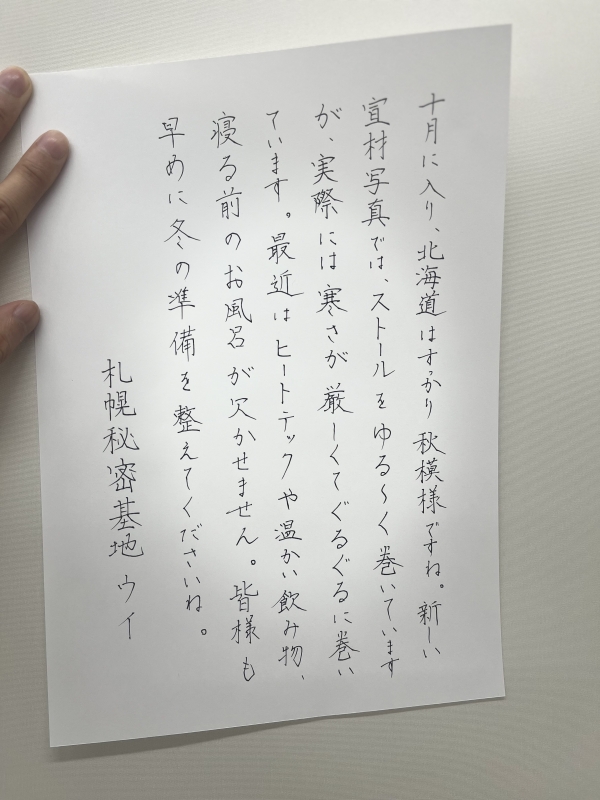 十月に入り、北海道はすっかり秋模様ですね。新しい
宣材写真では、ストールをゆる〜く巻いています
が、実際には寒さが厳しくてぐるぐるに巻い
ています。最近はヒートテックや温かい飲み物、
寝る前のお風呂が欠かせません。皆様も
早めに冬の準備を整えてくださいね。
札幌秘密基地 ウイ